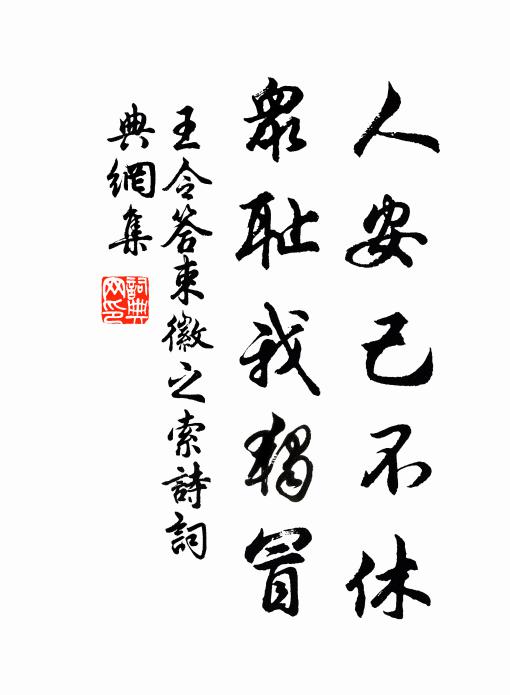 人安己不休
衆耻我獨冒
王令答束徽之索詩詞
典網集
詞典
网印